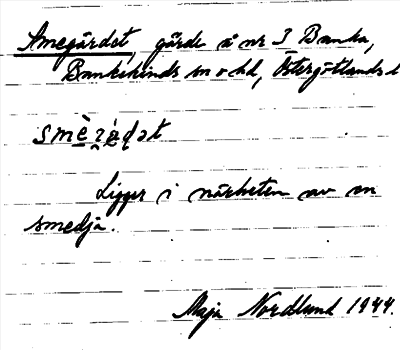 Smegärdet, gärde å nr 3 Banka,
Bankekinds sn o hd, Östergötlands l
smèṛàḍət
Ligger i närheten av en
smedja.
Maja Nordlund 1944.